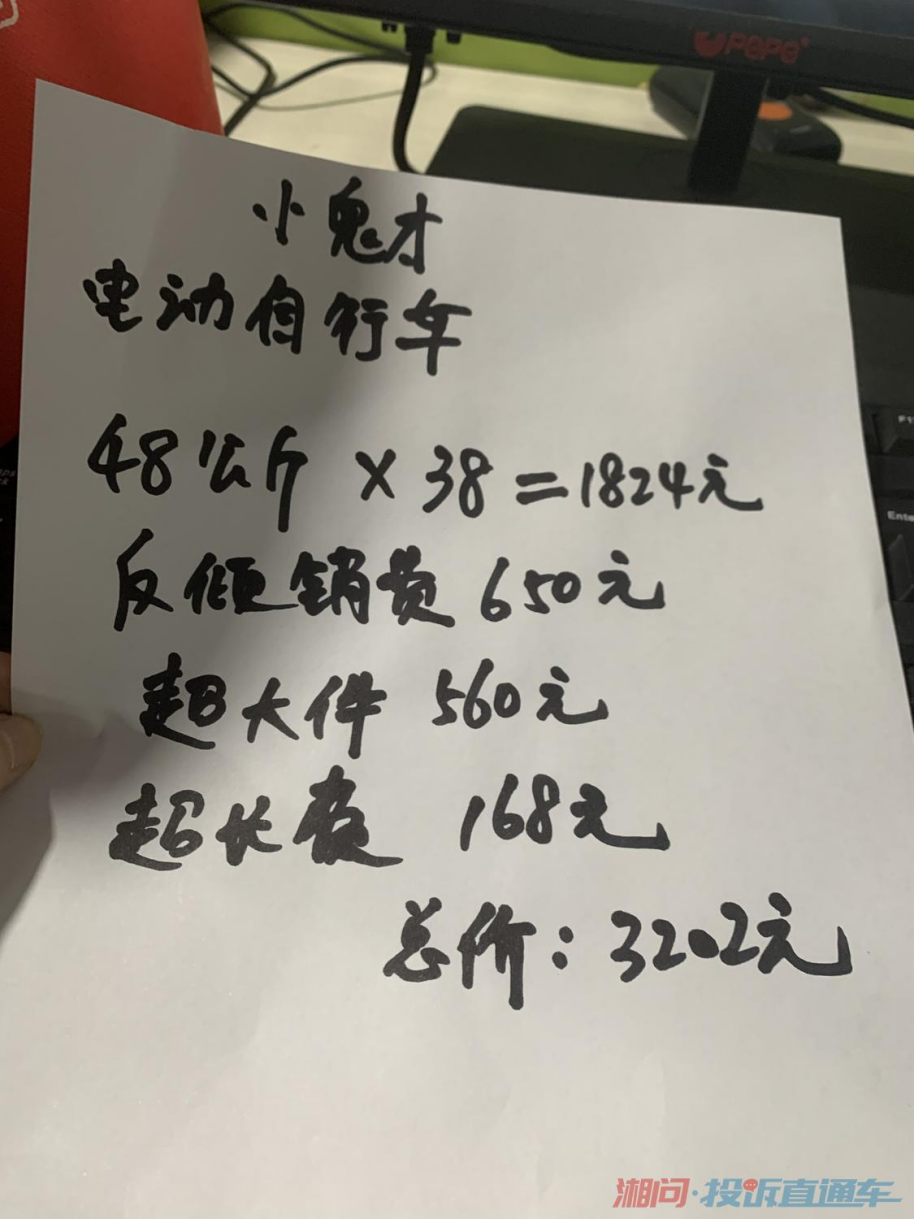 PePe
小鬼才
电动自行车
48公斤 × 38 = 1824元
反倾销费 650元
超大件 560元
超长费 168元
总价：3202元
Enter
湘问·投诉直通车